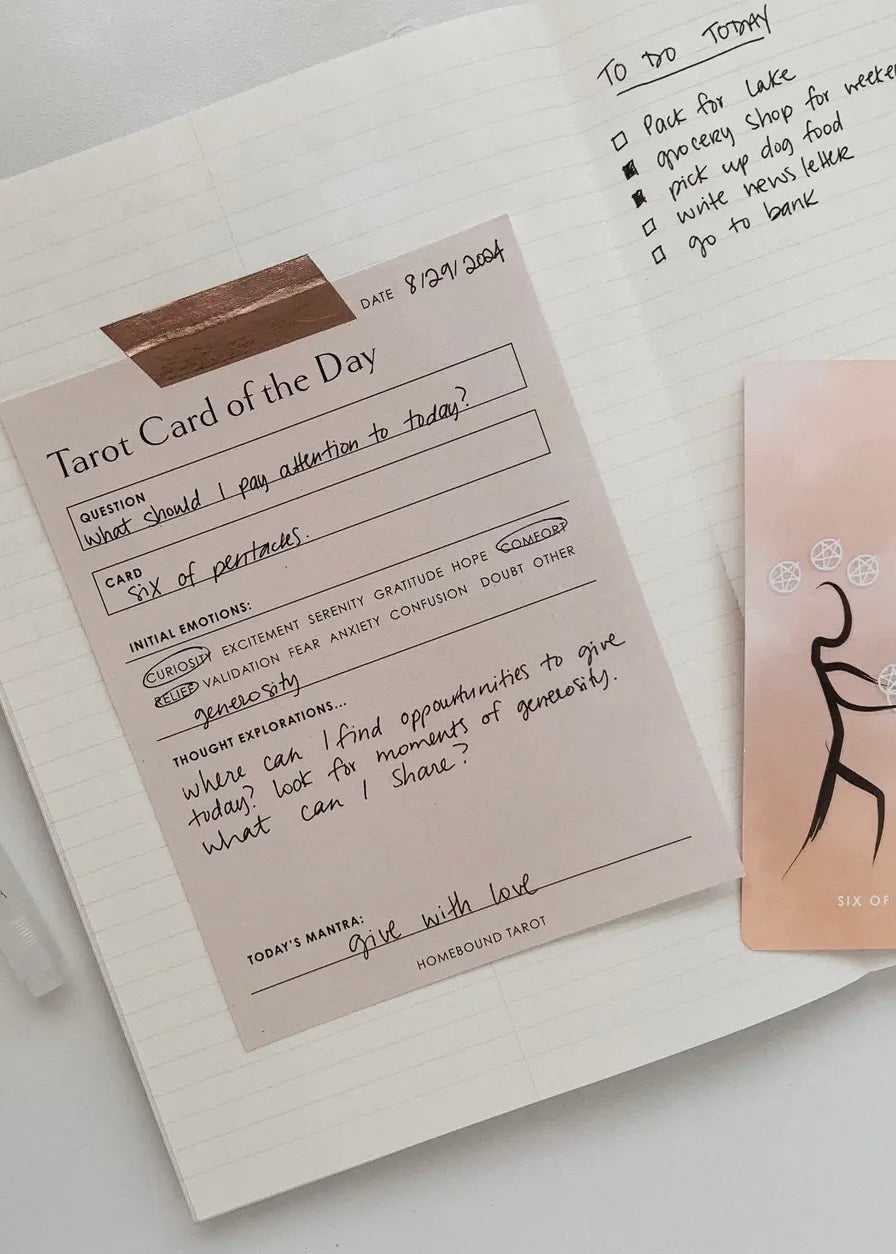 TO DO TODAY
Pack for lake
grocery shop for
pick up dog food
write newsletter
go to bank
DATE 8/29/2024
Tarot Card of the Day
QUESTION
what should I pay attention to today?
CARD
six of pentacles.
INITIAL EMOTIONS:
CURIOSITY EXCITEMENT SERENITY GRATITUDE HOPE COMFORT
RELIEF VALIDATION FEAR ANXIETY CONFUSION DOUBT OTHER
generosity
THOUGHT EXPLORATIONS...
where can I find oppourtunities to give
today? look for moments of generosity.
what can I share?
TODAY'S MANTRA: give with love
HOMEBOUND TAROT
SIX OF